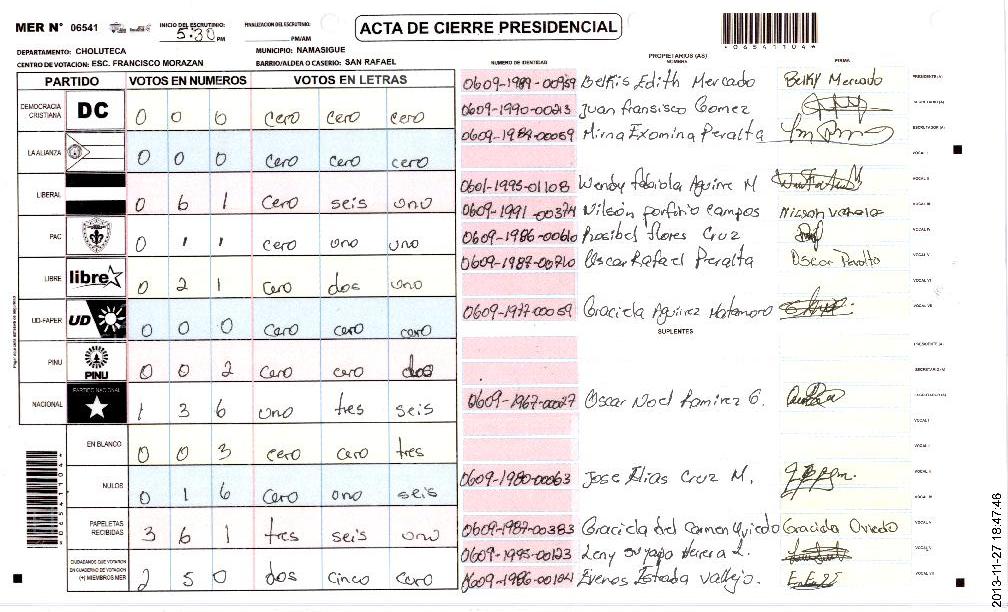 MER N° 06541 INICIO DEL ESCRUTINIO: 5:30 PM FINALIZACION DEL ESCRUTINIO: PM/AM ACTA DE CIERRE PRESIDENCIAL
06541104
DEPARTAMENTO: CHOLUTECA MUNICIPIO: NAMASIGUE
CENTRO DE VOTACION: ESC. FRANCISCO MORAZAN BARRIO/ALDEA O CASERIO: SAN RAFAEL
NUMERO DE IDENTIDAD PROPIETARIOS (AS) NOMBRE FIRMA
PARTIDO VOTOS EN NUMEROS VOTOS EN LETRAS
DEMOCRACIA CRISTIANA DC 0 0 0 cero cero cero
LA ALIANZA 0 0 0 cero cero cero
LIBERAL 0 6 1 cero seis uno
PAC 0 1 1 cero uno uno
LIBRE libre 0 2 1 cero dos uno
UD-FAPER UD 0 0 0 cero cero cero
PINU PINU 0 0 2 cero cero dos
NACIONAL PARTIDO NACIONAL 1 3 6 uno tres seis
EN BLANCO 0 0 3 cero cero tres
NULOS 0 1 6 cero uno seis
PAPELETAS RECIBIDAS 3 6 1 tres seis uno
CIUDADANOS QUE VOTARON EN CUADERNO DE VOTACION (+) MIEMBROS MER 2 5 0 dos cinco cero
0609-1989-00959 Belkis Edith Mercado Belky Mercado PRESIDENTE(A)
0609-1990-00213 Juan fransisco Gomez SECRETARIO(A)
0609-1989-00059 Mirna Exomina Peralta ESCRUTADOR(A)
VOCAL I
0601-1993-01108 Wendy fabiola Aguirre M VOCAL II
0609-1991-00374 Nilson porfirio campos VOCAL III
0609-1986-00610 Rosibel flores Cruz VOCAL IV
0609-1987-00710 Oscar Rafael Peralta Oscar Peralto VOCAL V
VOCAL VI
0609-1977-00059 Graciela Aguirrez Matamoro VOCAL VII
SUPLENTES
PRESIDENTE(A)
SECRETARIO(A)
0609-1967-00027 Oscar Noel Ramirez G. ESCRUTADOR(A)
VOCAL I
VOCAL II
0609-1980-00063 Jose Elias Cruz M. VOCAL III
VOCAL IV
0609-1987-00383 Graciela del carmen Oviedo Graciela Oviedo VOCAL V
0609-1995-00123 VOCAL VI
Evenos Estrada Vallejo. VOCAL VII
2013-11-27 18:47:46